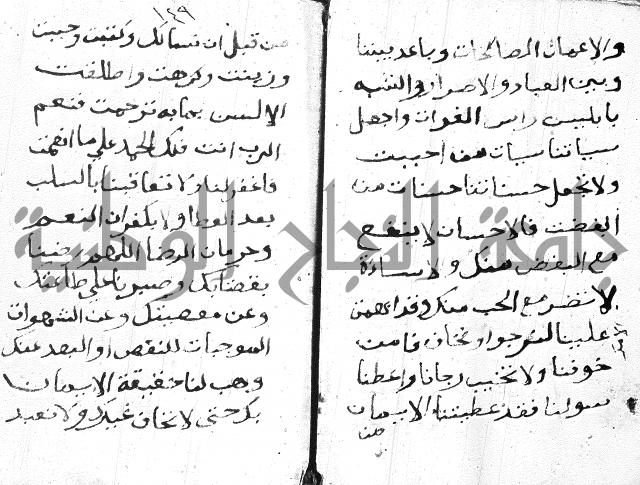 والاعمال الصالحات وباعد بيننا
وبين العباد والاصرار والشبه
بابليس راس الغوات واجعل
سياتنا سيات من احببت
ولا تجعل حسناتنا حسنات من
ابغضت فالاحسان لا ينفع
مع البغض منك والاساءة
لا تضر مع الحب منك وقد ابهمت
علينا لنرجوا ونخاف فامن
خوفنا ولا تخيب رجانا واعطنا
سولنا فقد عطيتنا الايمان
من
١٤٩
من قبل ان نسالك وكتبت وحببت
وزينت وكرهت واطلقت
الالسن بما به ترجمت فنعم
الرب انت فلك الحمد على ما انعمت
فاغفر لنا ولا تعاقبنا بالسلب
بعد العطا ولا بكفران النعم
وحرمان الرضا اللهم رضينا
بقضايك وصبرنا على طاعتك
وعن معصيتك وعن الشهوات
الموجبات للنقص او البعد عنك
وهب لنا حقيقة الايمان
بك حتى لا نخاف غيرك ولا نعبد
جامعة النجاح الوطنية